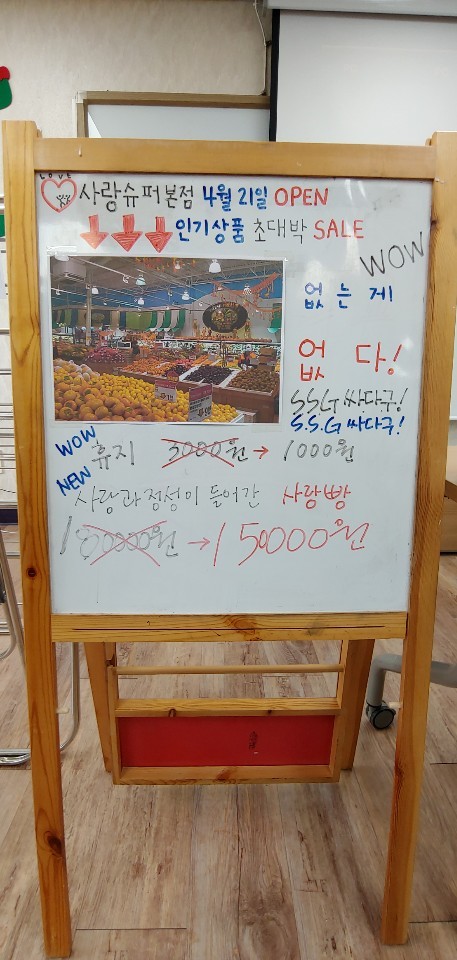 LOVE
사랑슈퍼본점 4월 21일 OPEN
인기상품 초대박 SALE
WOW
없는게
없다!
SSG 싸다구!
S.S.G 싸다구!
WOW 휴지 3000원 → 1000원
NEW 사랑과정성이 들어간 사랑빵
180000원 → 150000원